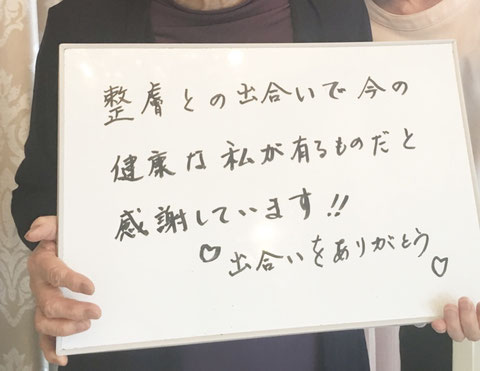 整膚との出合いで今の
健康な私が有るものだと
感謝しています!!
♡出合いをありがとう♡